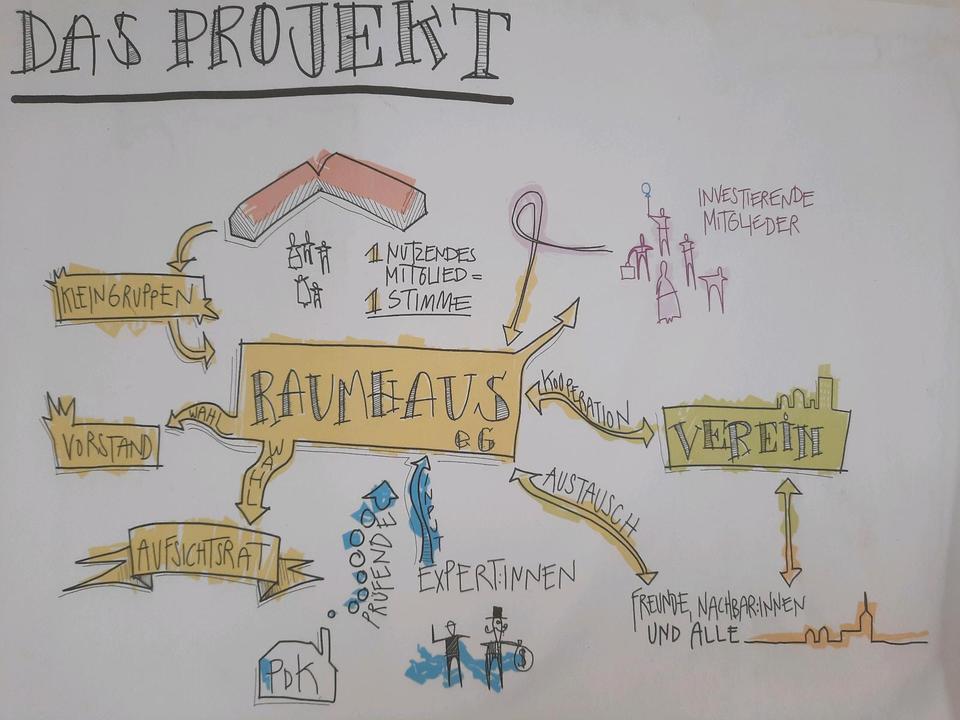 DAS PROJEKT
INVESTIERENDE
MITGLIEDER
1 NUTZENDES
MITGLIED =
1 STIMME
KLEINGRUPPEN
RAUMHAUS
eG
KOOPERATION
VEREIN
WAHL
VORSTAND
WAHL
AUFSICHTSRAT
AUSTAUSCH
PRÜFENDE
EXPERT:INNEN
FREUNDE, NACHBAR:INNEN
UND ALLE
PdK
$